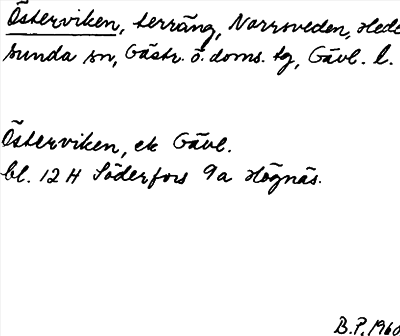 Österviken, terräng, Norrsveden, Hede
sunda sn, Gästr. ö. doms. tg, Gävl. l.
Österviken, ek Gävl.
bl. 12 H Söderfors 9a Högnäs.
B.P. 1960